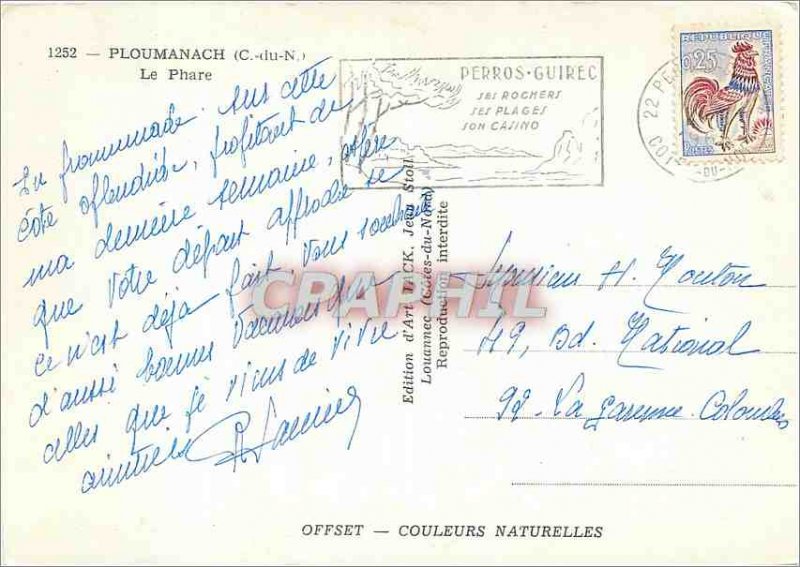 1252 — PLOUMANACH (C.-du-N.)
Le Phare
En promenade sur cette
côte splendide, profitant de
ma dernière semaine,
que votre départ approche se
ce n'est déjà fait, vous souhaite
d'aussi bonnes vacances
celles que je viens de vivre
PERROS-GUIREC
SES ROCHERS
SES PLAGES
SON CASINO
22 PE
CÔT -DU-
REPUBLIQUE FRANÇAISE
0,25
POSTES
Edition d'Art JACK, Jean Stoll
Louannec (Côtes-du-Nord)
Reproduction interdite
CPAPHIL
Monsieur H. Mouton
49, Bd. National
92-La Garenne-Colombes
OFFSET — COULEURS NATURELLES